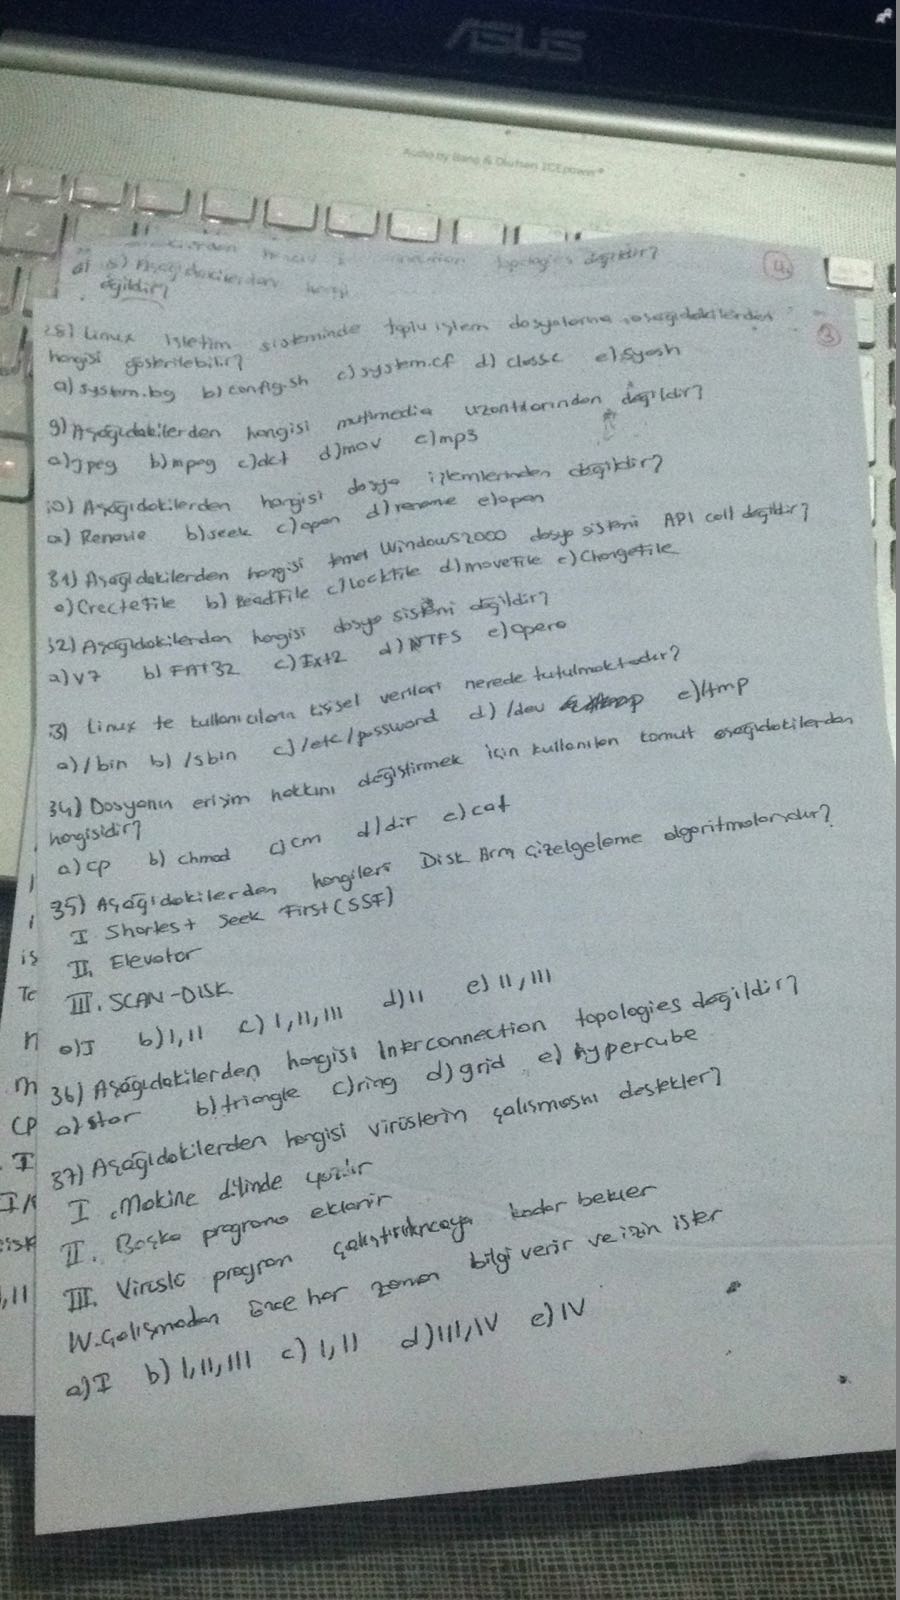 ASUS
Audio by Bang & Olufsen ICEpower®
topologies değildir?
4
Aşağıdakilerden
değildir?
28) Linux işletim sisteminde toplu işlem dosyalarına aşağıdakilerden
3
hangisi gösterilebilir?
a) system.bg b) config.sh c) system.cf d) classc e) Sysh
9) Aşağıdakilerden hangisi multimedia uzantılarından değildir?
a) jpeg b) mpeg c) dct d) mov e) mp3
30) Aşağıdakilerden hangisi dosya işlemlerinden değildir?
a) b) seek c) open d) rename e) open
31) Aşağıdakilerden hangisi temel Windows2000 dosya sistemi API call değildir?
a) CreateFile b) ReadFile c) LockFile d) moveFile e) ChangeFile
32) Aşağıdakilerden hangisi dosya sistemi değildir?
a) V7 b) FAT32 c) Ext2 d) NTFS e) opera
3) Linux te kullanıcıların kişisel verileri nerede tutulmaktadır?
a) /bin b) /sbin c) /etc/password d) /dev e) /tmp
34) Dosyanın erişim hakkını değiştirmek için kullanılan komut aşağıdakilerden
hangisidir?
a) cp b) chmod c) cm d) dir e) cat
35) Aşağıdakilerden hangileri Disk Arm Çizelgeleme algoritmalarıdır?
I Shortest Seek First (SSF)
II. Elevator
III. SCAN-DISK
a) I b) I, II c) I, II, III d) II e) II, III
36) Aşağıdakilerden hangisi Interconnection topologies değildir?
a) star b) triangle c) ring d) grid e) hypercube
37) Aşağıdakilerden hangisi virüslerin çalışmasını destekler?
I. Makine dilinde yazılır
II. Başka programa eklenir
III. Virüslü program çalıştırılıncaya kadar bekler
IV. Çalışmadan önce her zaman bilgi verir ve izin ister
a) I b) I, II, III c) I, II d) III, IV e) IV